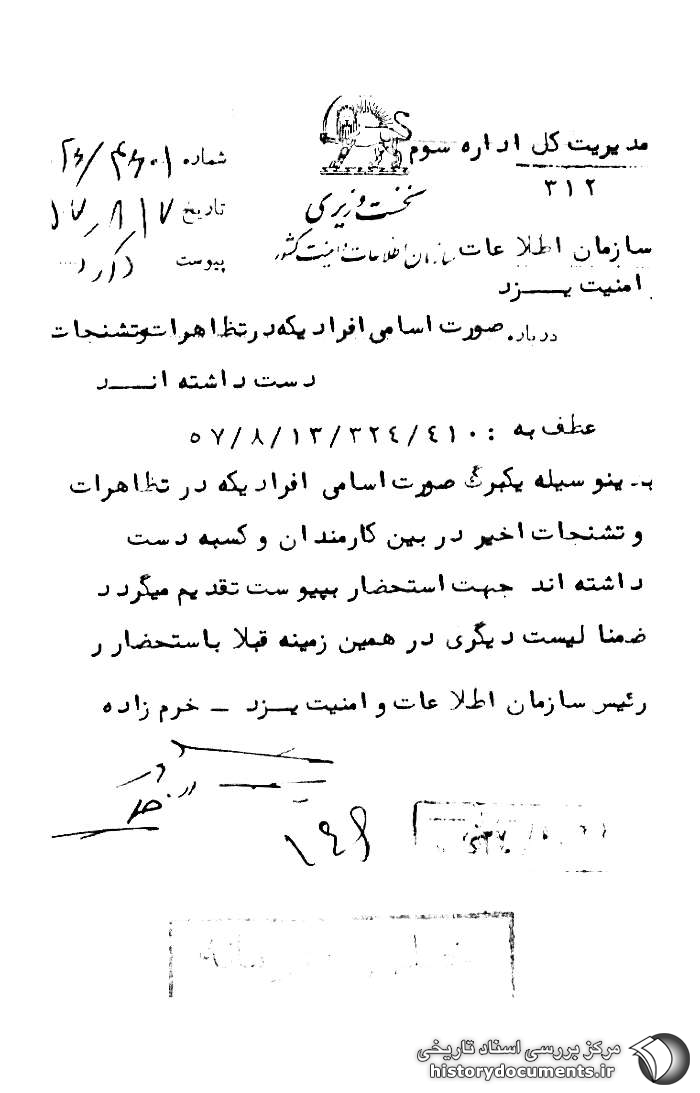 مدیریت کل اداره سوم
۳۱۲
شماره
تاریخ ۵۷/۸/۱۷
پیوست
نخست وزیری
سازمان اطلاعات و امنیت کشور
سازمان اطلاعات
امنیت یزد
درباره صورت اسامی افرادیکه در تظاهرات و تشنجات
دست داشته اند
عطف به : ۵۷/۸/۱۳/۳۲٤/٤۱۰
بدینوسیله یکبرگ صورت اسامی افرادیکه در تظاهرات
و تشنجات اخیر در بین کارمندان و کسبه دست
داشته اند جهت استحضار بپیوست تقدیم میگردد
ضمنا لیست دیگری در همین زمینه قبلا باستحضار ر
رئیس سازمان اطلاعات و امنیت یزد – خرم زاده
مرکز بررسی اسناد تاریخی
historydocuments.ir